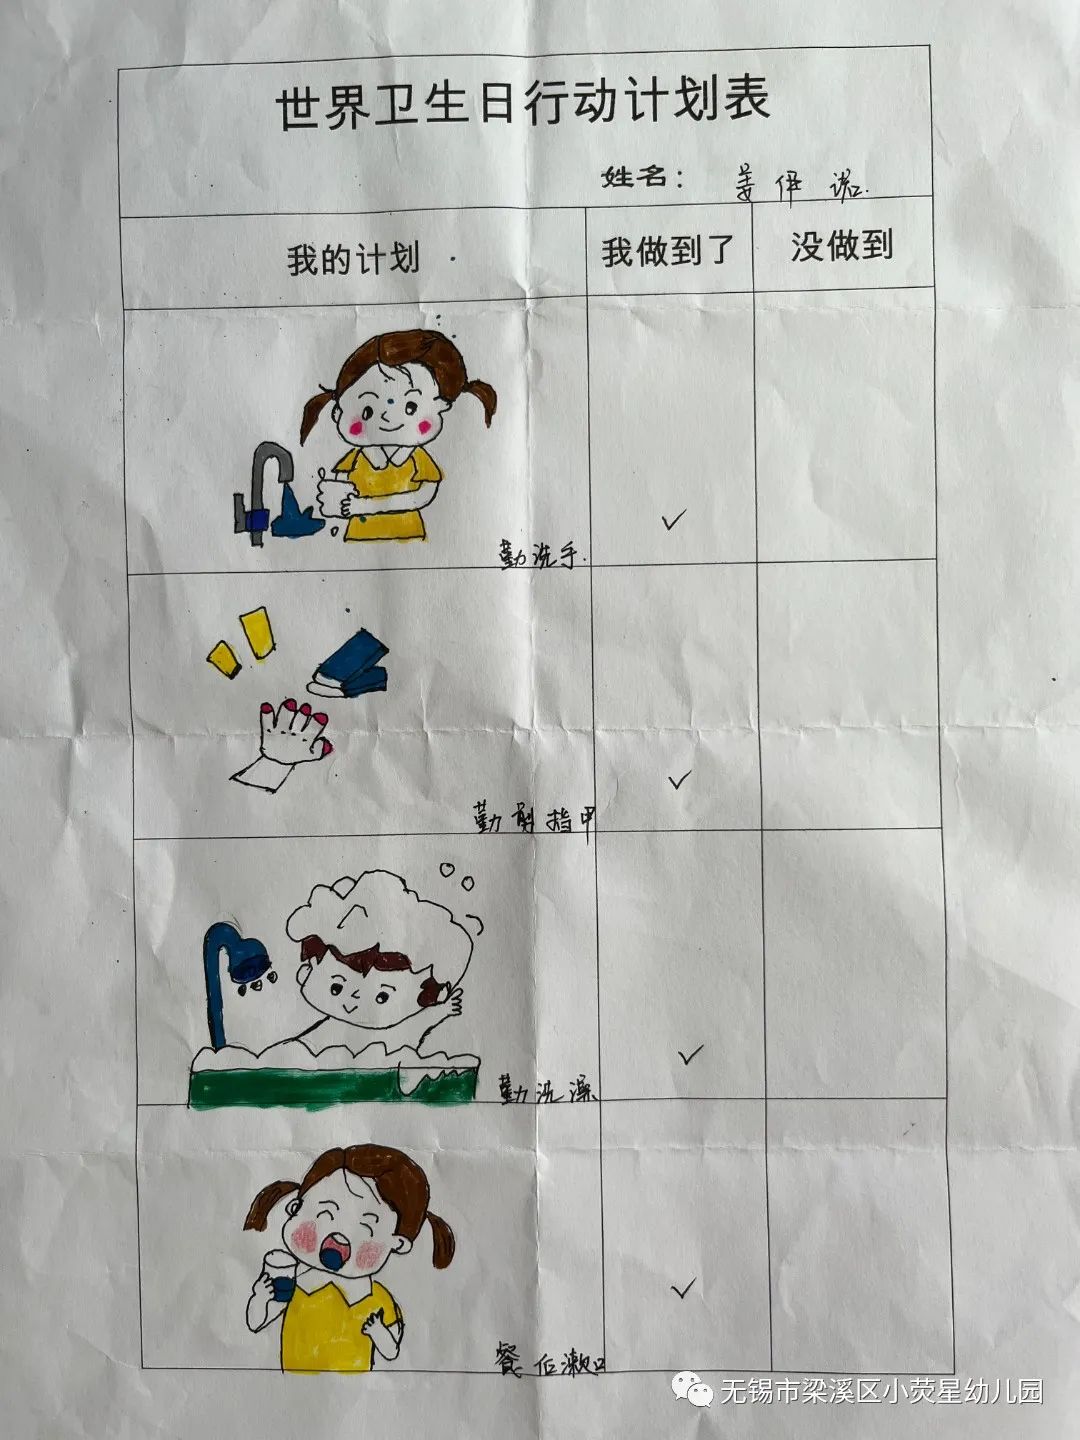 世界卫生日行动计划表
姓名： 姜伊诺.
我的计划 我做到了 没做到
勤洗手.
勤剪指甲
勤洗澡
餐后漱口
无锡市梁溪区小荧星幼儿园